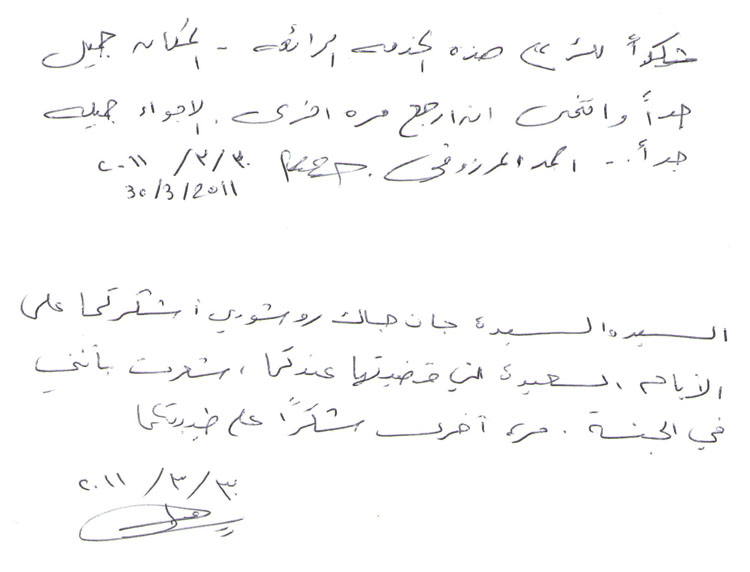 شكراً لكم على هذه الخدمه الرائعه - المكان جميل
جداً واتمنى ان ارجع مره اخرى . الاجواء جميله
جداً . - احمد المرزوقي . ٢٠١١ / ٣ / ٣٠
30/3/2011
السيد والسيدة جان جاك روشوري أشكركما على
الأيام السعيدة التي قضيتها عندكما ، شعرت بأنني
في الجنة . مرة أخرى شكرًا على طيبتكما
٢٠١١ / ٣ / ٣٠